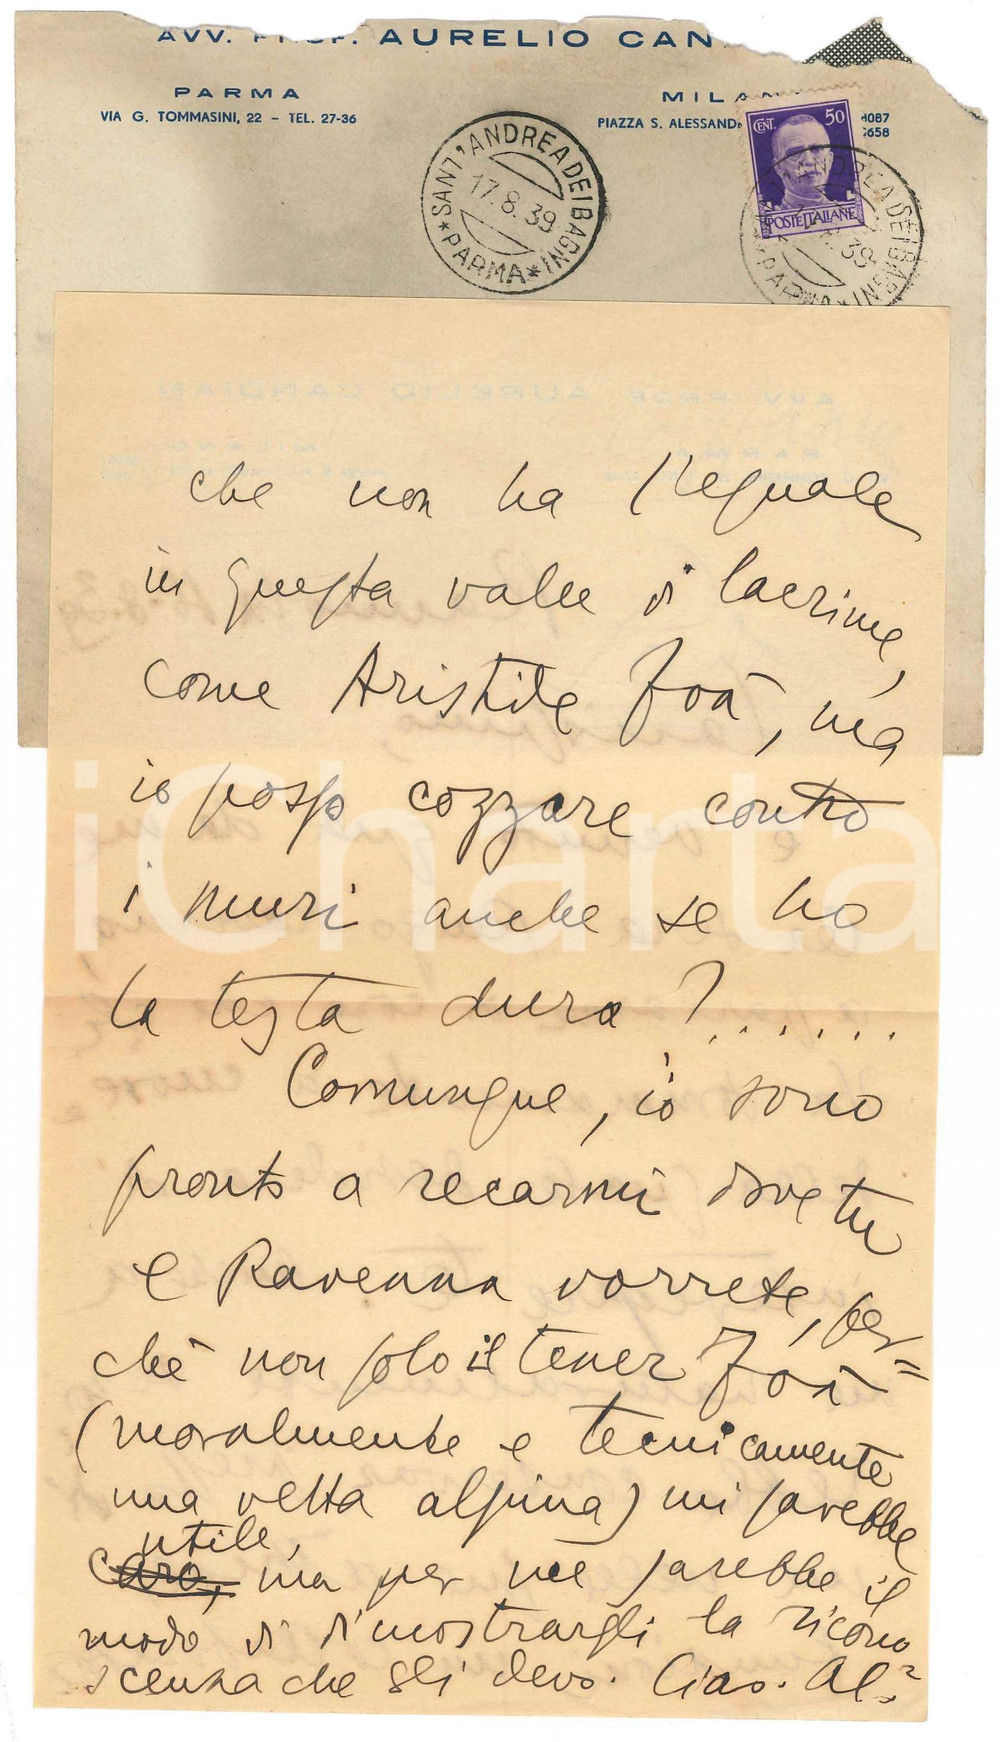 AVV. PROF. AURELIO CAN
PARMA
VIA G. TOMMASINI, 22 - TEL. 27-36
MILAN
PIAZZA S. ALESSAND
SANT'ANDREA DEI BAGNI
17.8.39
*PARMA*
CENT. 50
POSTE ITALIANE
che non ha l'eguale
in questa valle di lacrime,
come Aristide Foà, ma
io posso cozzare contro
i muri anche se ho
la testa dura ?......
Comunque, io sono
pronto a recarmi dove tu
e Ravenna vorrete, per=
chè non solo il tener Foà
(moralmente e tecnicamente
una vetta alpina) mi sarebbe
utile,
caro, ma per me sarebbe il
modo di dimostrargli la ricono
scenza che gli devo. Ciao. Al.
iCharta